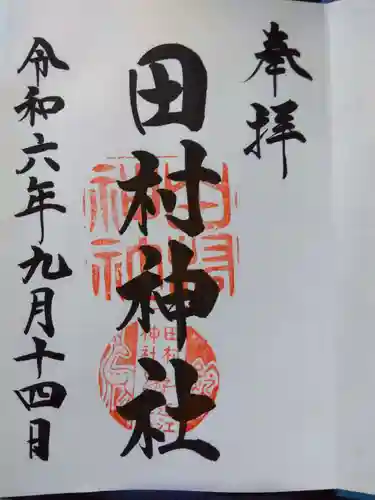 奉拝
田村神社
令和六年九月十四日
田村
神社